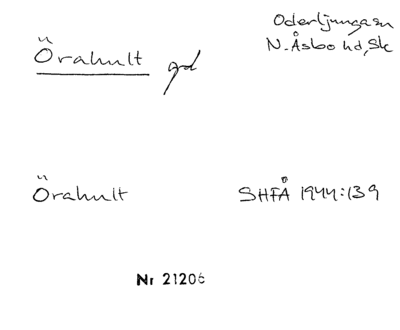 Örahult gd
Oderljunga sn
N. Åsbo hd, Sk
Örahult
SHFÅ 1944:139
Nr 21206